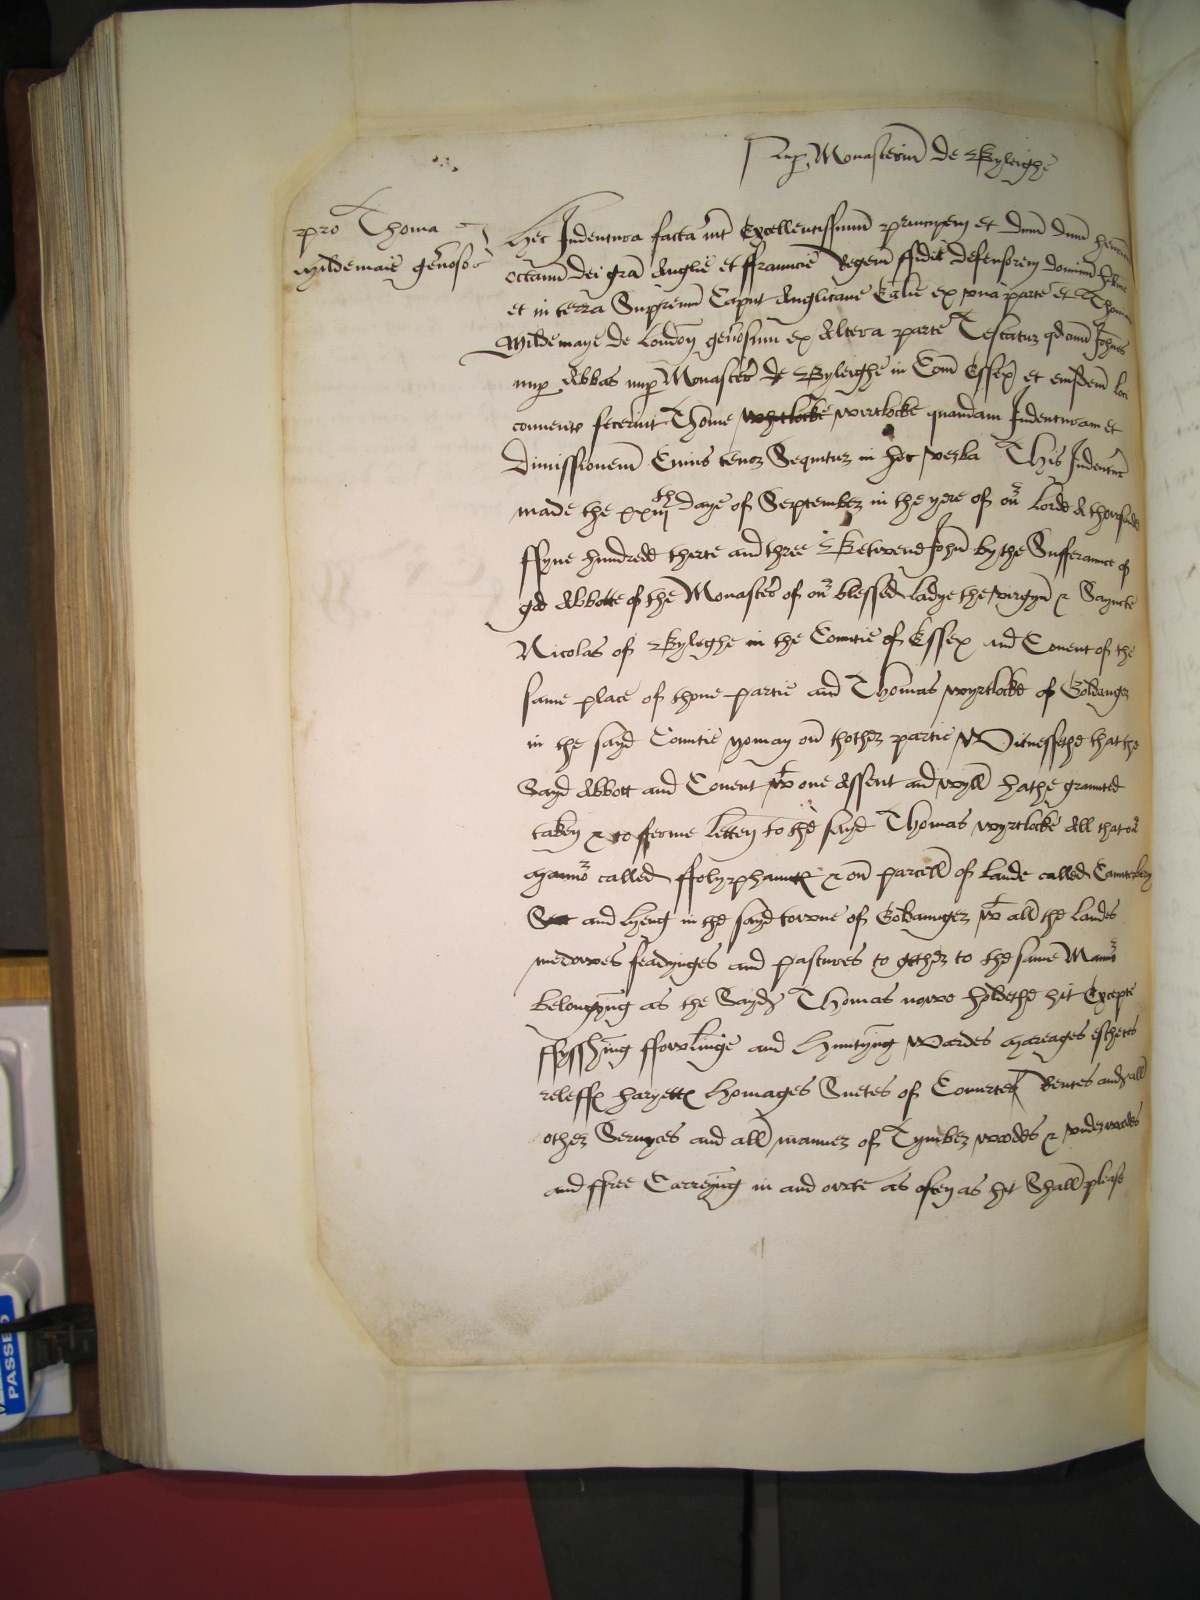 Nup Monasterium de Byleighe
pro Thoma
Mildemaie generoso
Hec Indentura facta int Excellentissimu principem et dnm dnm henricu
octauu dei gra Anglie et ffrauncie Regem ffidei defensorem dominu hibnie
et in terra Supremu Caput Anglicane Ecclie ex vna parte et Thoma
Mildemaye de London generosum ex Altera parte Testatur qd cum Johnes
nup Abbas nup Monaster de Byleighe in Com Essex et eiusdem loci
conuent fecerint Thome whitlocke wirtlocke quandam Indenturam et
Dimissionem Cuius tenor Sequitur in hec verba This Indenture
made the xxiijth daye of September in the yere of our Lorde A thowsande
ffyue hundredd therte and three Betwene John by the Sufferaunce of
god Abbotte of the Monaster of our blessed ladye the virgyn & Sayncte
Nicolas of Byleghe in the Countie of Essex and Couent of the
same place of thone partie and Thomas wyrtlocke of Goldanger
in the sayd Countie yoman on thother partie Witnessethe that the
Sayd Abbott and Couent wt one Assent and wyll hathe graunted
taken & to fferme letten to the sayd Thomas wyrtlocke All that our
Mannor called ffolyphaunte & on parcell of Lande called Caunterbery
Sett and lyeng in the sayd towne of Goldanger wt all the landes
medowes feadynges and pastures to gether to the same Mannor
belongyng as the Sayd Thomas nowe holdethe hit Excepte
ffysshing ffowlinge and Huntyng Wardes Mareages eschetes
releffe haryette Homages Suetes of Courtes Rentes and all
other Seruyces and all manner of Tymber woodds & vnderwoodes
and ffree Carreyng in and owte as often as hit Shall please